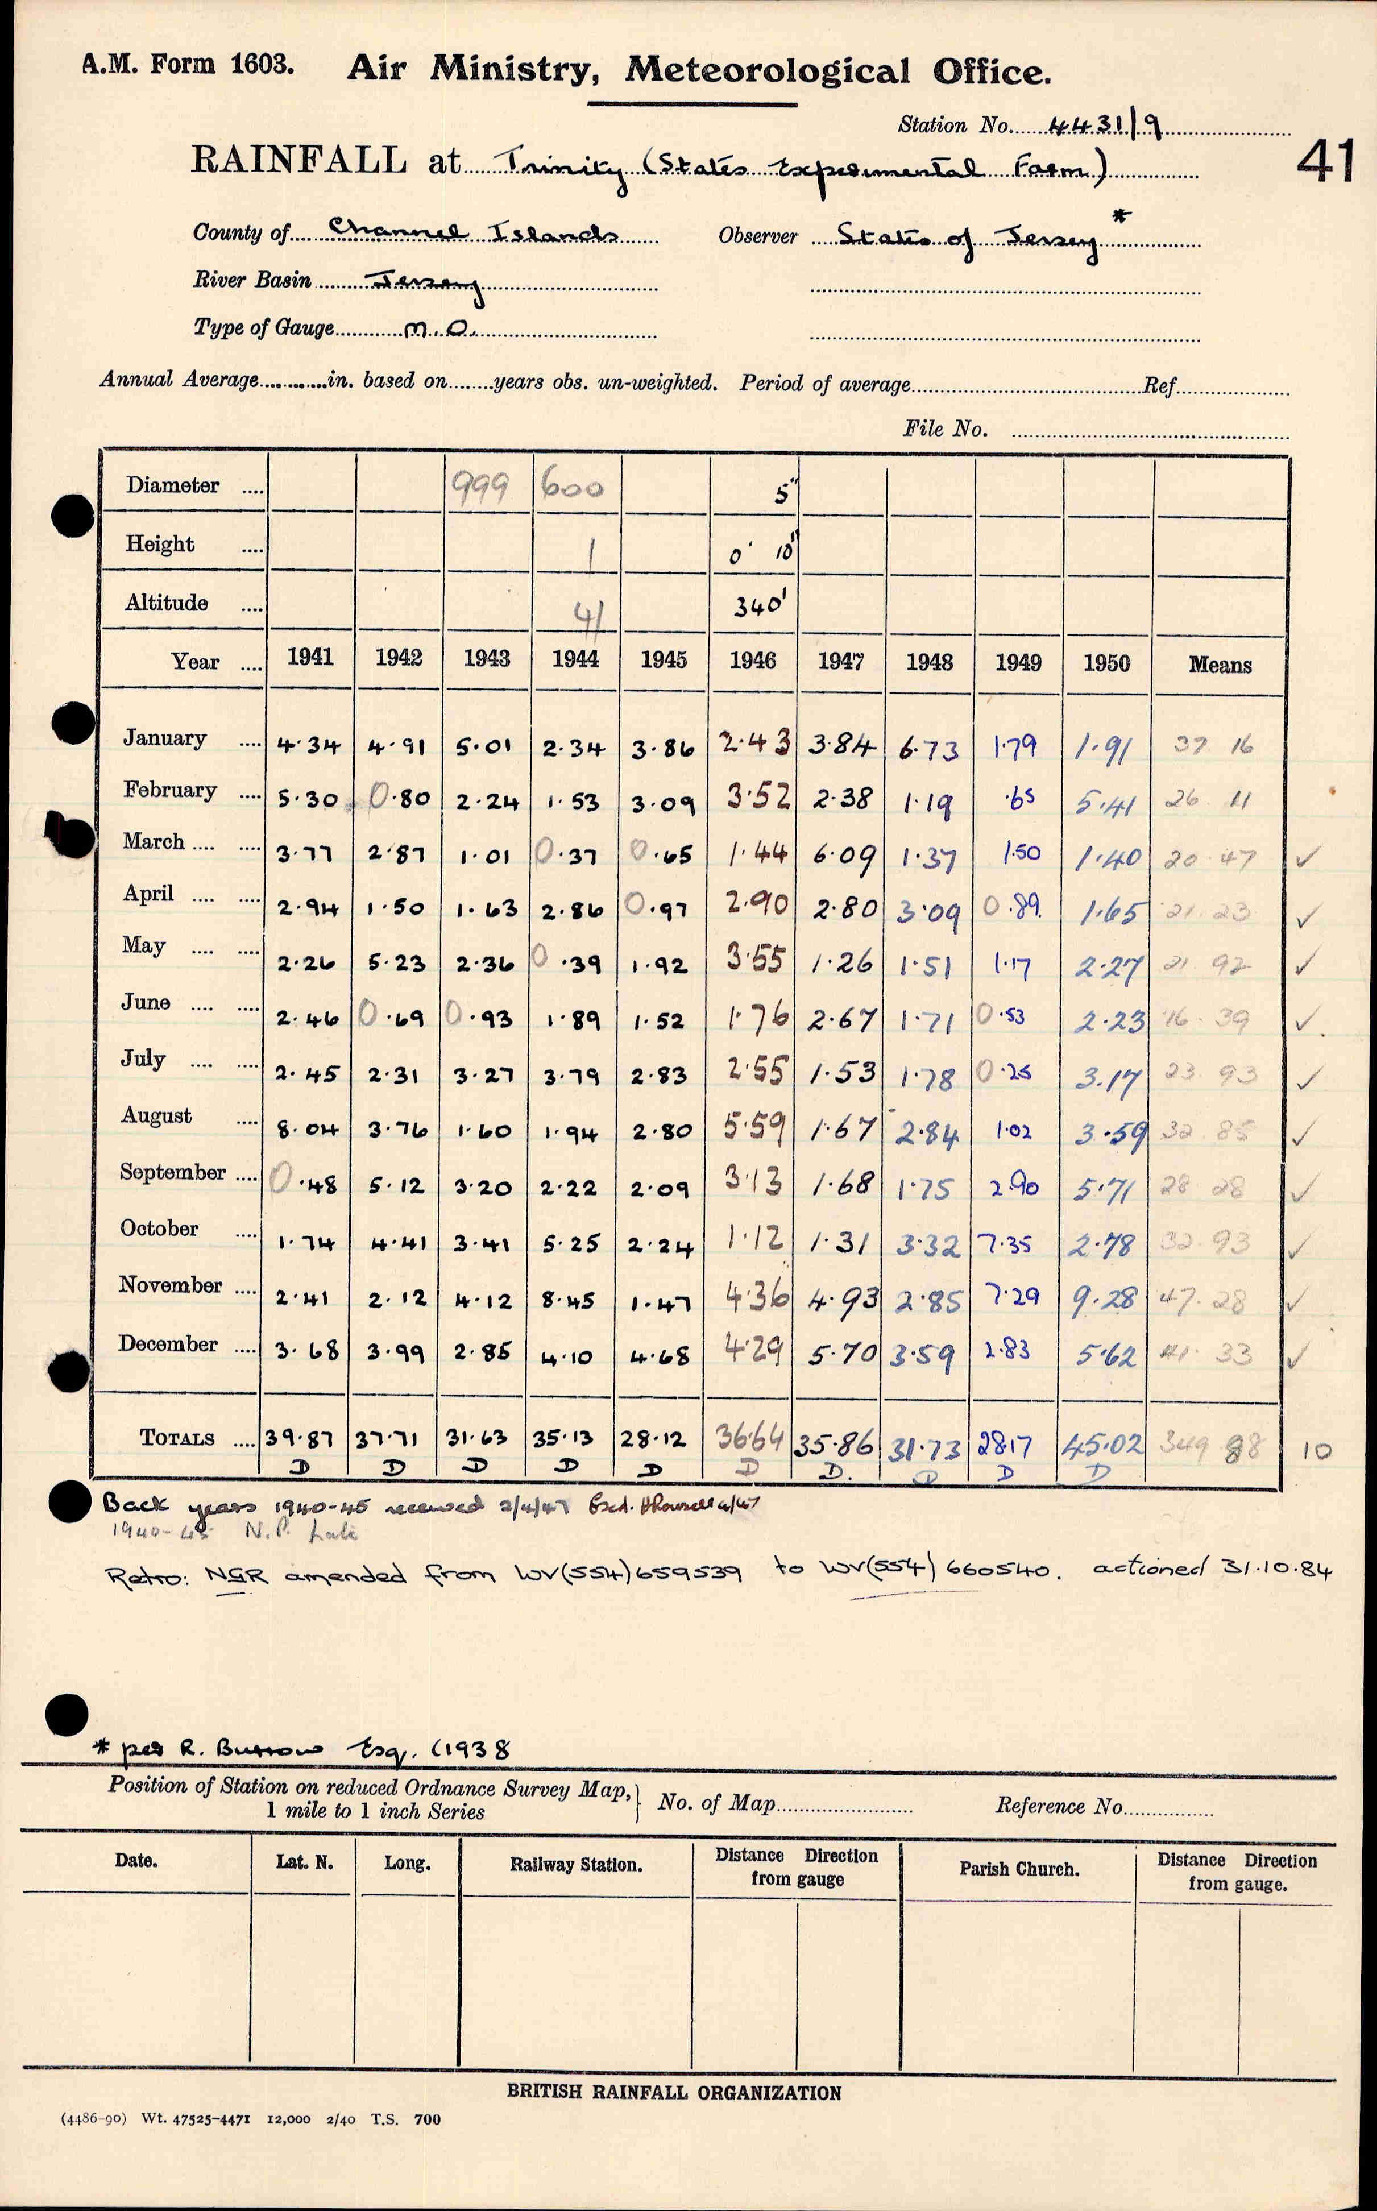 A.M. Form 1603. Air Ministry, Meteorological Office.
Station No. 4431/9
41
RAINFALL at Trinity (States Experimental Farm)
County of Channel Islands Observer States of Jersey *
River Basin Jersey
Type of Gauge M.O.
Annual Average in. based on years obs. un-weighted. Period of average Ref.
File No.
Diameter 999 600 5"
Height 1 0' 10"
Altitude 41 340'
Year 1941 1942 1943 1944 1945 1946 1947 1948 1949 1950 Means
January 4.34 4.91 5.01 2.34 3.86 2.43 3.84 6.73 1.79 1.91 37 16
February 5.30 0.80 2.24 1.53 3.09 3.52 2.38 1.19 .65 5.41 26 11
March 3.77 2.87 1.01 0.37 0.65 1.44 6.09 1.37 1.50 1.40 20.47 ✓
April 2.94 1.50 1.63 2.86 0.97 2.90 2.80 3.09 0.89 1.65 21 23 ✓
May 2.26 5.23 2.36 0.39 1.92 3.55 1.26 1.51 1.17 2.27 21 92 ✓
June 2.46 0.69 0.93 1.89 1.52 1.76 2.67 1.71 0.53 2.23 16.39 ✓
July 2.45 2.31 3.27 3.79 2.83 2.55 1.53 1.78 0.25 3.17 23 93 ✓
August 8.04 3.76 1.60 1.94 2.80 5.59 1.67 2.84 1.02 3.59 32 85 ✓
September 0.48 5.12 3.20 2.22 2.09 3.13 1.68 1.75 2.90 5.71 28 28 ✓
October 1.74 4.41 3.41 5.25 2.24 1.12 1.31 3.32 7.35 2.78 32.93 ✓
November 2.41 2.12 4.12 8.45 1.47 4.36 4.93 2.85 7.29 9.28 47.28 ✓
December 3.68 3.99 2.85 4.10 4.68 4.29 5.70 3.59 2.83 5.62 41.33 ✓
TOTALS 39.87 37.71 31.63 35.13 28.12 36.64 35.86 31.73 28.17 45.02 349 88 10
D D D D D D D. D D D
Back years 1940-45 received 2/4/47
1940-45 N.P. Late
Retro: NGR amended from WV(554)659539 to WV(554)660540. actioned 31.10.84
* per R. Burrow Esq. (1938
Position of Station on reduced Ordnance Survey Map,
1 mile to 1 inch Series } No. of Map Reference No.
Date. Lat. N. Long. Railway Station. Distance Direction from gauge Parish Church. Distance Direction from gauge.
BRITISH RAINFALL ORGANIZATION
(4486-90) Wt. 47525-4471 12,000 2/40 T.S. 700